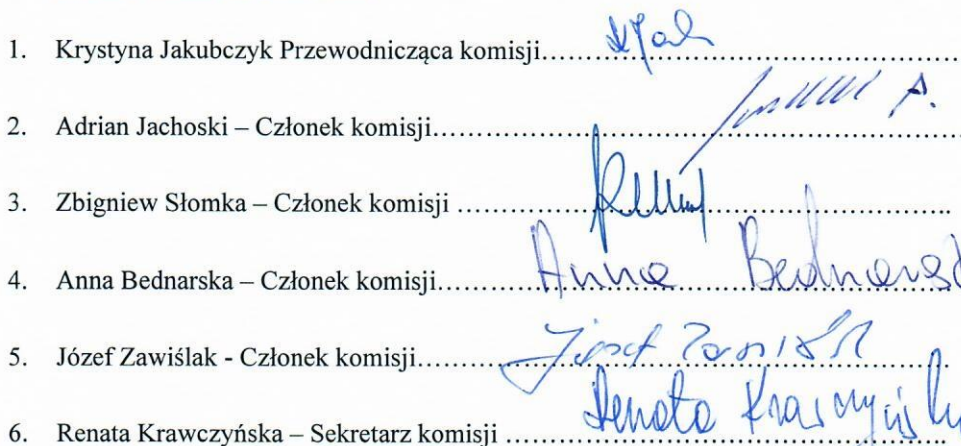 1. Krystyna Jakubczyk Przewodnicząca komisji……………………………………
2. Adrian Jachoski – Członek komisji……………………………………
3. Zbigniew Słomka – Członek komisji ……………………………………
4. Anna Bednarska – Członek komisji…… Anna Bednarsk
5. Józef Zawiślak - Członek komisji…… Józef
6. Renata Krawczyńska – Sekretarz komisji …… Renata Krawczyńska